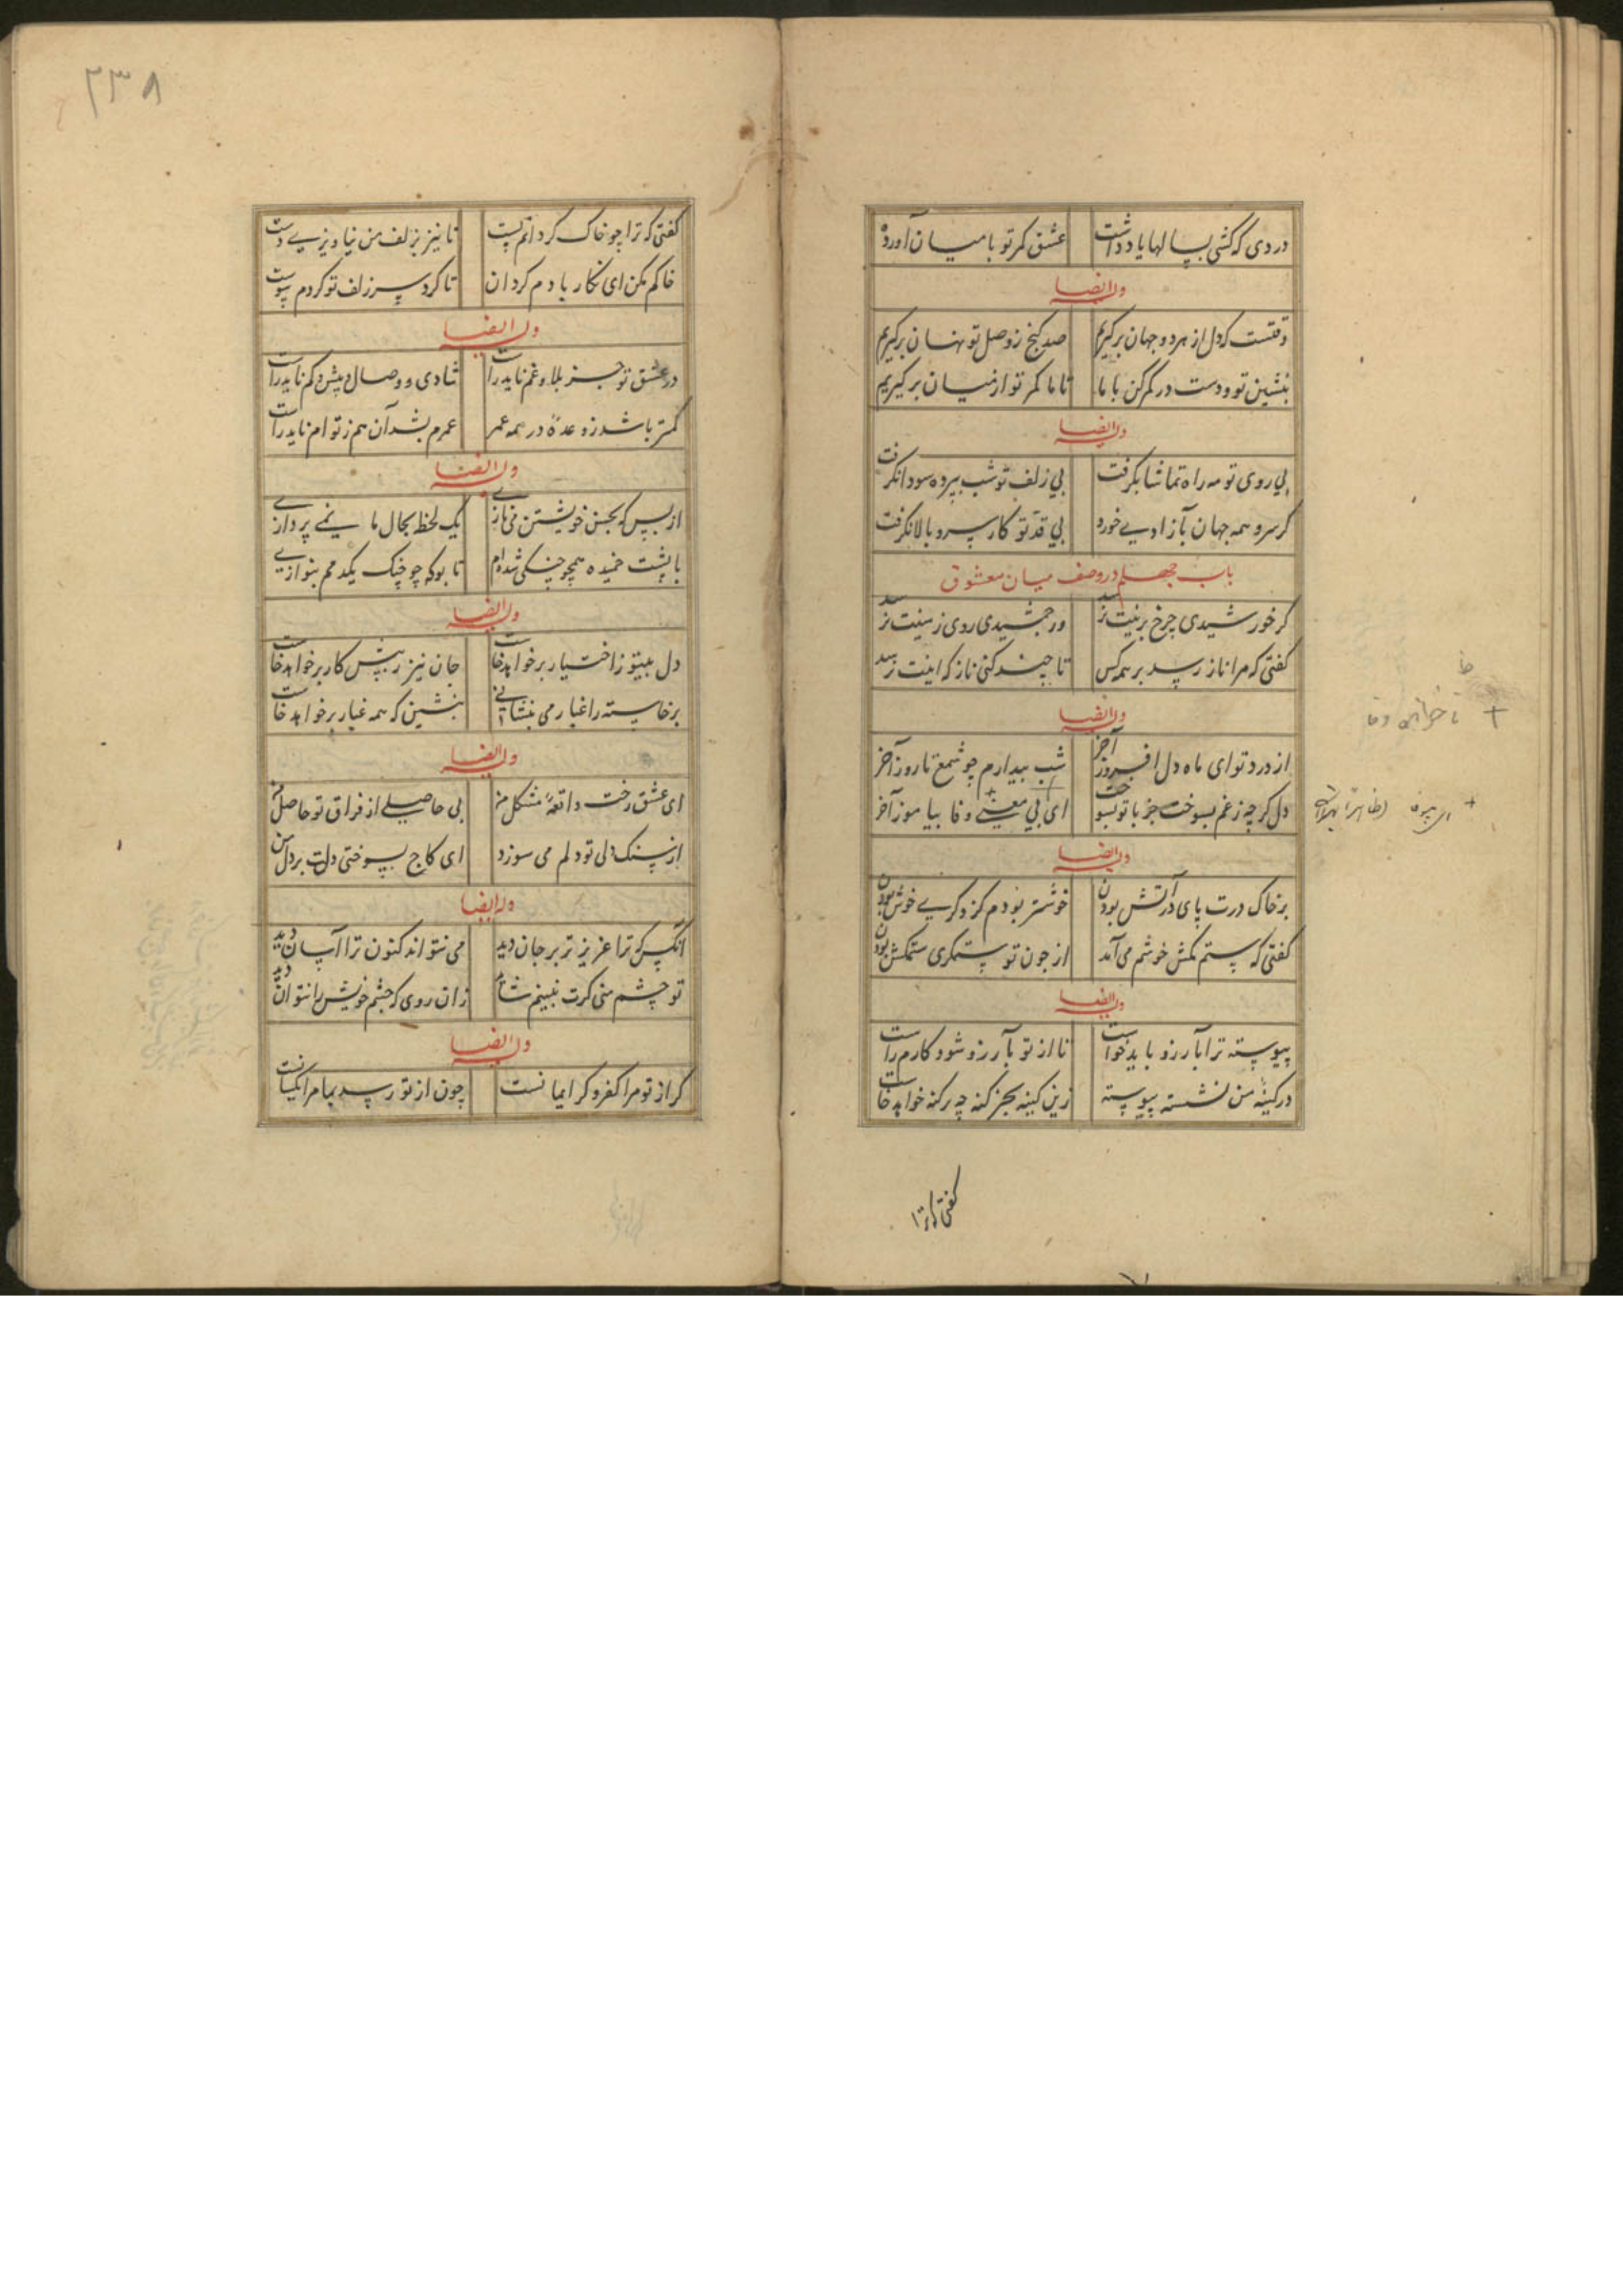 دردی که کشی بسالها یاد نداشت عشق کمر تو با میان آورده
وله ایضا
وقتست که دل از هر دو جهان برگیریم صد گنج ز وصل تو نهان برگیریم
بنشین تو و دست در کمر کن با ما تا ما کمر تو از میان برگیریم
وله ایضا
بی روی تو مه راه تماشا بگرفت بی زلف تو شب پرده سودا نگرفت
گر سرو همه جهان بآزادی خورد بی قد تو کار سرو بالا نگرفت
باب چهلم در وصف میان معشوق
گر خورشیدی چرخ برینت نرسد ور جمشیدی روی زمینت نرسد
گفتی که مرا ناز رسد بر همه کس تا چند کنی ناز که اینت نرسد
وله ایضا
از درد تو ای ماه دل افروز آخر شب بیدارم چو شمع تا روز آخر
دل گرچه ز غم بسوخت جز با تو نسوخت ای بی معنی وفا بیاموز آخر
وله ایضا
بر خاک درت پای در آتش بودن خوشتر بودم کز دگری خوش بودن
گفتی که ستم مکش خوشم می آمد از چون تو ستمگری ستمکش بودن
وله ایضا
پیوسته ترا بآرزو باید خواست تا از تو بآرزو شود کارم راست
در کینه من نشسته پیوسته زین کینه بجز کنه چه برکنه خواهد خاست
گفتی که ترا
۲۳۸
گفتی که ترا چو خاک گردانم پست تا نیز بزلف من نیاویزی دست
خاکم مکن ای نگار بادم گردان تا گرد سر زلف تو گردم پیوست
وله ایضا
در عشق تو جز بلا و غم ناید راست شادی و وصال بیش و کم ناید راست
کمتر باشد ز وعده در همه عمر عمرم بشد آن هم ز تو ام ناید راست
وله ایضا
از بس که بحسن خویشتن می نازی یک لحظه بحال ما نمی پردازی
با پشت خمیده همچو چنگی شده ام تا بوکه چو چنگ یکدمم بنوازی
وله ایضا
دل بیتو ز اختیار برخواهد خاست جان نیز ز پیش کار برخواهد خاست
برخاسته را غبار می بنشانی بنشین که همه غبار برخواهد خاست
وله ایضا
ای عشق رخت واقعه مشکل من بی حاصلی از فراق تو حاصل من
از سنگ دلی تو دلم می سوزد ای کاج بسوختی دلت بر دل من
وله ایضا
آنکس که ترا عزیزتر بر جان دید می نتواند کنون ترا آسان دید
تو چشم منی گرت نبینم شاید زان روی که چشم خویش را نتوان دید
وله ایضا
گر از تو مرا کفر و گر ایمانست چون از تو رسد بما مرا یکسانست